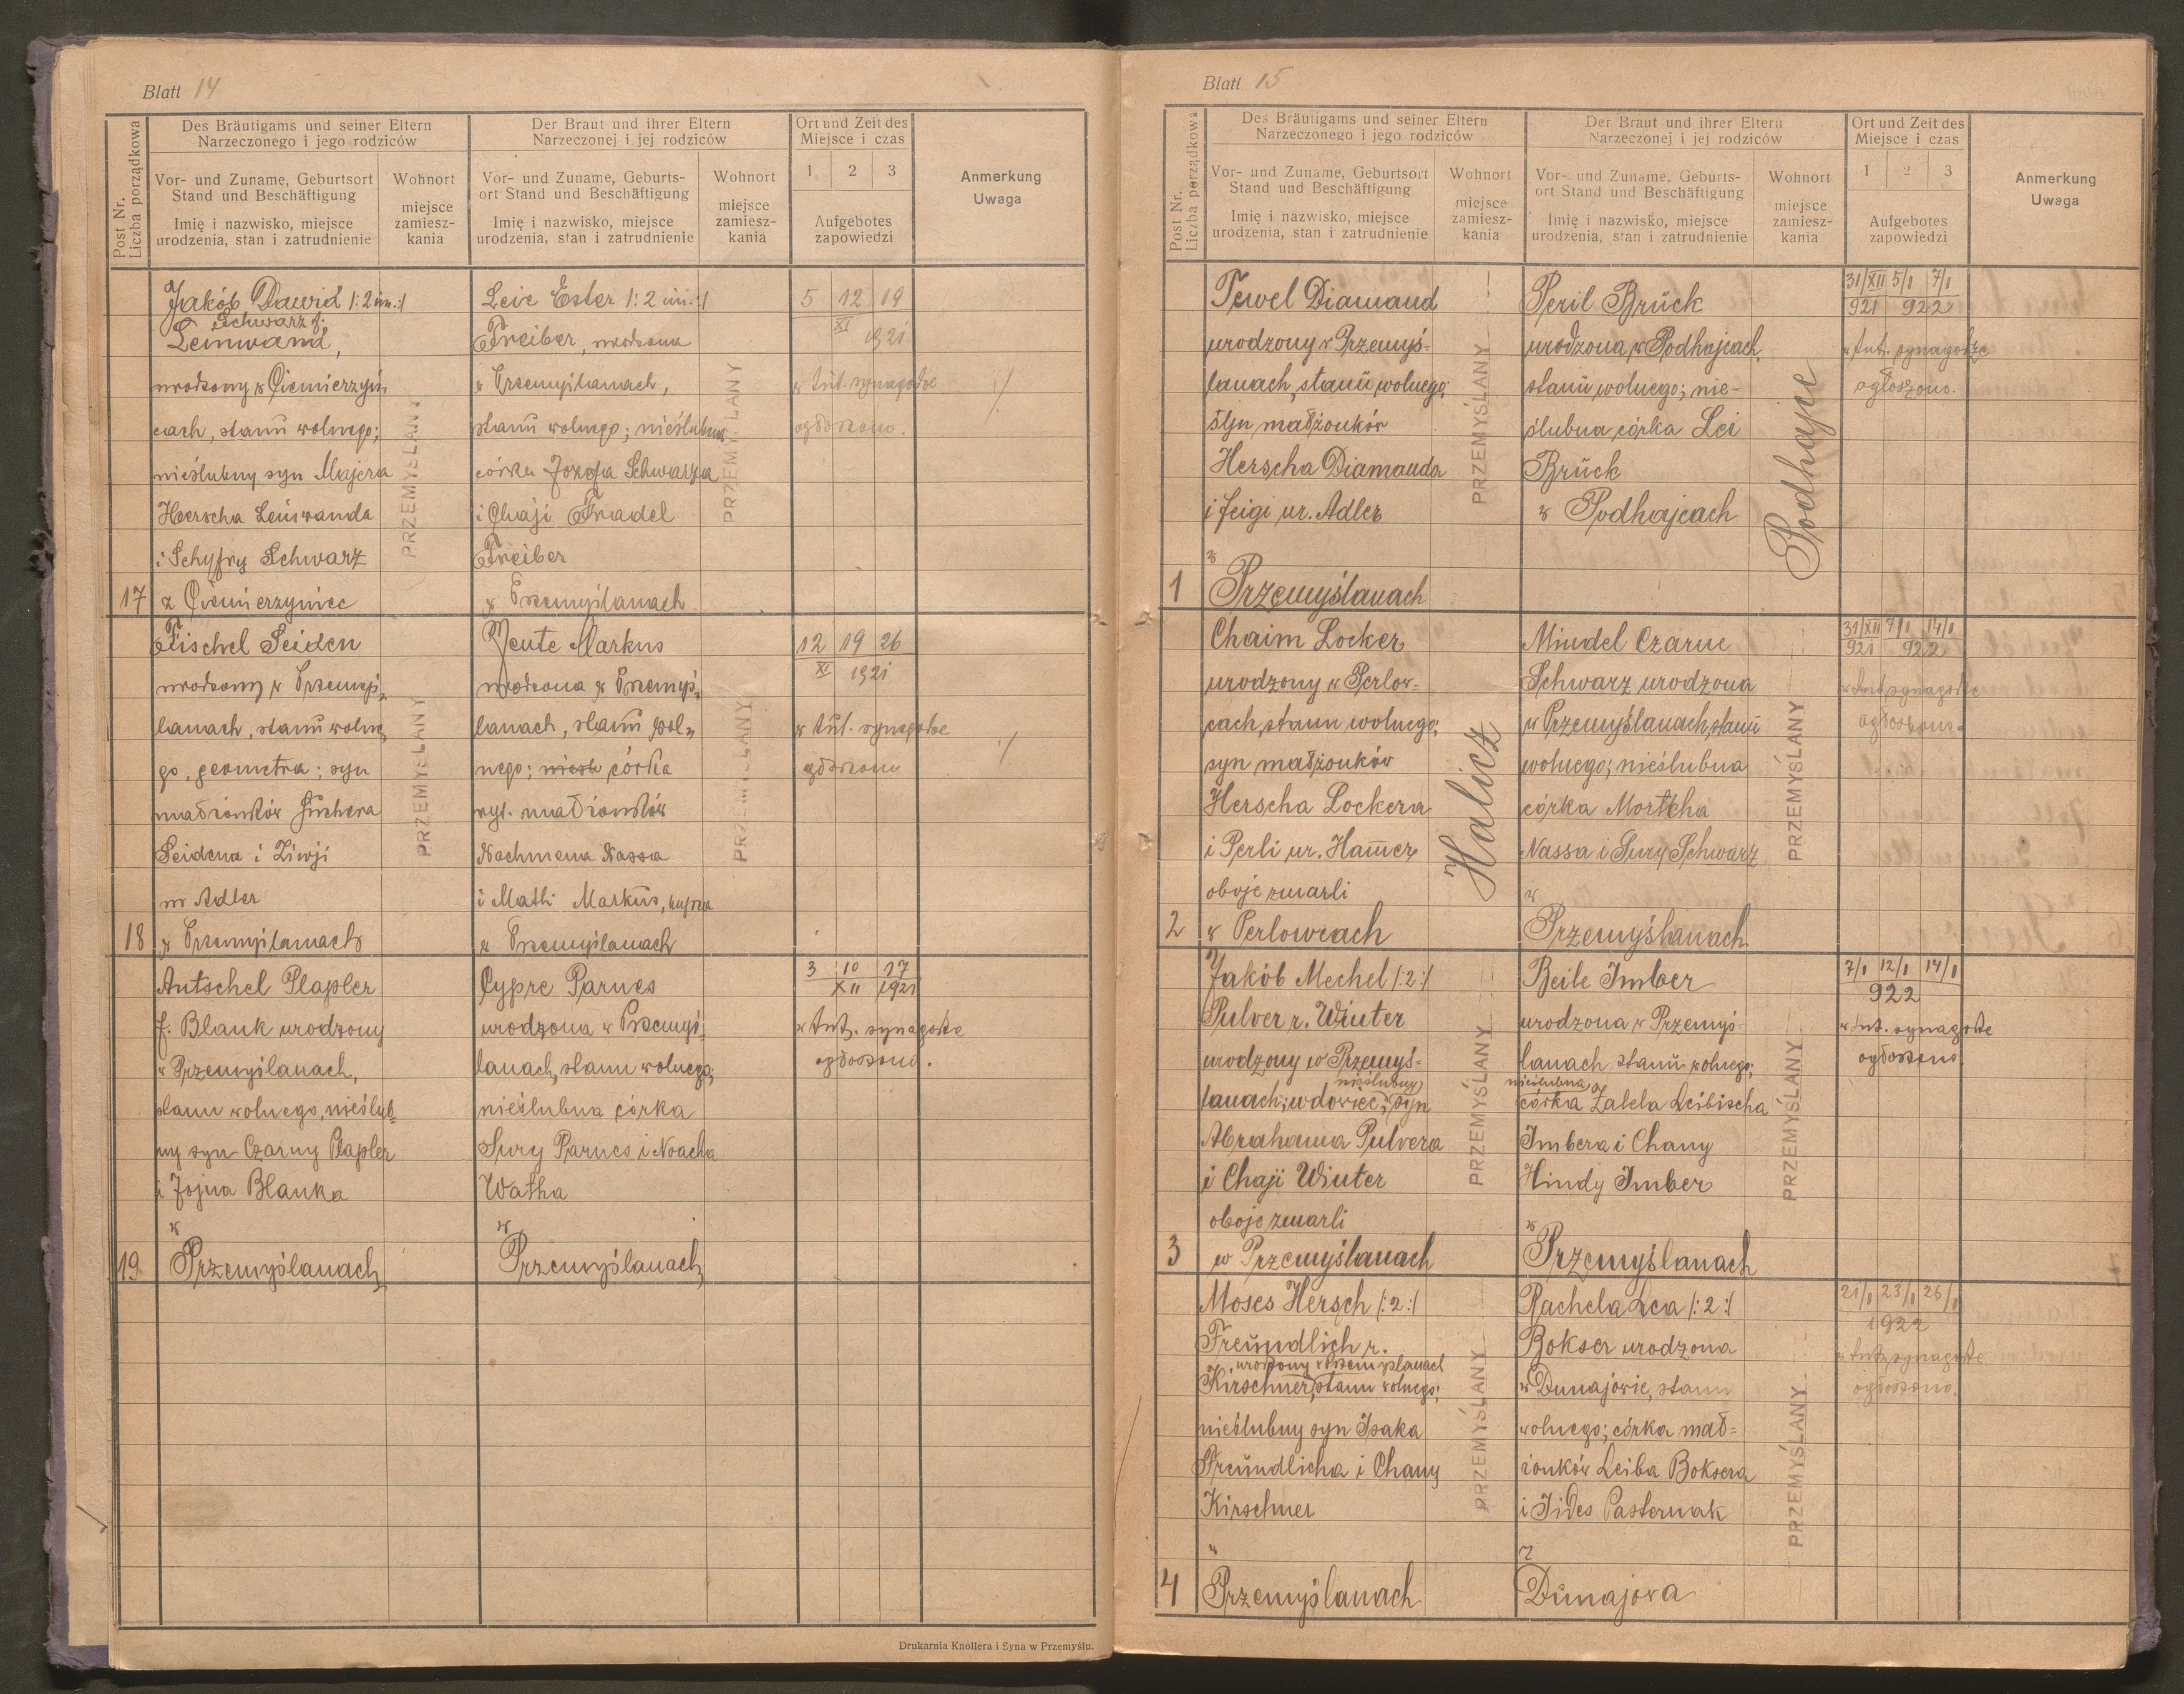 Blatt 14
Post Nr.
Liczba porządkowa
Des Bräutigams und seiner Eltern
Narzeczonego i jego rodziców
Der Braut und ihrer Eltern
Narzeczonej i jej rodziców
Ort und Zeit des
Miejsce i czas
Vor- und Zuname, Geburtsort
Stand und Beschäftigung
Imię i nazwisko, miejsce
urodzenia, stan i zatrudnienie
Wohnort
miejsce
zamiesz-
kania
Vor- und Zuname, Geburts-
ort Stand und Beschäftigung
Imię i nazwisko, miejsce
urodzenia, stan i zatrudnienie
Wohnort
miejsce
zamiesz-
kania
1 2 3
Aufgebotes
zapowiedzi
Anmerkung
Uwaga
Jakób Dawid /:2 im.:/
Schwarz f.
Leinwand,
urodzony w Ciemierzyń-
cach, stanu wolnego;
nieślubny syn Majera
Herscha Leinwanda
i Schyfry Schwarz
17 z Ciemierzyniec
PRZEMYŚLANY
Leie Ester /:2 im.:/
Freiber, urodzona
w Przemyślanach,
stanu wolnego; nieślubna
córka Józefa Schwarza
i Chaji Fradel
Freiber
w Przemyślanach
PRZEMYŚLANY
5 12 19
XI 1921
w tut. synagodze
ogłoszono.
Fischel Seiden
urodzony w Przemyś-
lanach, stanu wolne-
go, geometra; syn
małżonków
Seidena i
ur Adler
18 w Przemyślanach
PRZEMYŚLANY
Yente Markus
urodzona w Przemyś-
lanach, stanu wol-
nego; nieśl córka
ryt. małżonków
Nachmana Nassa
i Mathi Markus,
w Przemyślanach
PRZEMYŚLANY
12 19 26
XI 1921
w tut. synagodze
ogłoszono
Antschel Plapler
f. Blank urodzony
w Przemyślanach,
stanu wolnego, nieślub-
ny syn Czarny Plapler
i Jojna Blanka
w
19 Przemyślanach
Cypre Parnes
urodzona w Przemyś-
lanach, stanu wolnego;
nieślubna córka
Sury Parnes i Noacha
Watha
w
Przemyślanach
3 10 17
XII 1921
w tut. synagodze
ogłoszono.
Drukarnia Knollera i Syna w Przemyślu.
Blatt 15
Post Nr.
Liczba porządkowa
Des Bräutigams und seiner Eltern
Narzeczonego i jego rodziców
Der Braut und ihrer Eltern
Narzeczonej i jej rodziców
Ort und Zeit des
Miejsce i czas
Vor- und Zuname, Geburtsort
Stand und Beschäftigung
Imię i nazwisko, miejsce
urodzenia, stan i zatrudnienie
Wohnort
miejsce
zamiesz-
kania
Vor- und Zuname, Geburts-
ort Stand und Beschäftigung
Imię i nazwisko, miejsce
urodzenia, stan i zatrudnienie
Wohnort
miejsce
zamiesz-
kania
1 2 3
Aufgebotes
zapowiedzi
Anmerkung
Uwaga
Tewel Diamand
urodzony w Przemyś-
lanach, stanu wolnego;
syn małżonków
Herscha Diamanda
i Feigi ur. Adler
w
1 Przemyślanach
PRZEMYŚLANY
Peril Brück
urodzona w Podhajcach,
stanu wolnego; nie-
ślubna córka Lei
Brück
w Podhajcach
Podhajce
31/XII 5/I 7/I
921 922
w tut. synagodze
ogłoszono.
Chaim Locker
urodzony w Perlow-
cach, stanu wolnego;
syn małżonków
Herscha Lockera
i Perli ur. Hamer
oboje zmarli
2 w Perlowcach
Halicz
Mindel Czarne
Schwarz urodzona
w Przemyślanach, stanu
wolnego; nieślubna
córka Mortcha
Nassa i Sury Schwarz
w
Przemyślanach
PRZEMYŚLANY
31/XII 7/I 14/I
921 922
w tut. synagodze
ogłoszono.
Jakób Mechel /:2:/
Pulver r. Winter
urodzony w Przemyś-
nieślubny
lanach; wdowiec; syn
Abrahama Pulvera
i Chaji Winter
oboje zmarli
3 w Przemyślanach
PRZEMYŚLANY
Beile Imber
urodzona w Przemyś-
lanach stanu wolnego;
nieślubna
córka Zalela Leibischa
Imbera i Chany
Hindy Imber
w
Przemyślanach
PRZEMYŚLANY
7/I 12/I 14/I
922
w tut. synagodze
ogłoszono
Moses Hersch /:2:/
Freundlich r.
urodzony w Przemyślanach
Kirschner, stanu wolnego;
nieślubny syn Isaka
Freundlicha i Chany
Kirschner
w
4 Przemyślanach
PRZEMYŚLANY
Rachela Lea /:2:/
Bokser urodzona
w Dunajowie, stanu
wolnego; córka mał-
żonków Leiba Boksera
i Jides Pasternak
z
Dunajowa
PRZEMYŚLANY
21/I 23/I 26/I
1922
w tut. synagodze
ogłoszono.